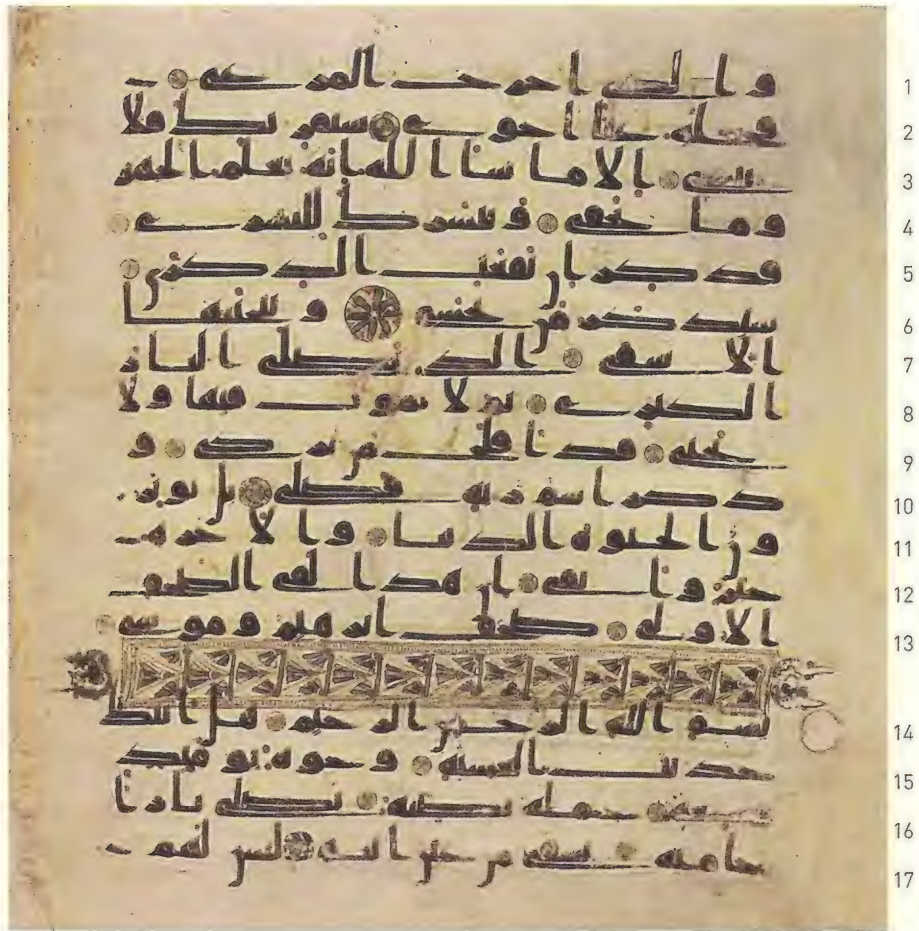 1 والذي اخرج المرعى
2 فجعله غثا احوى سنقريك فلا
3 تنسى الا ما شا الله انه يعلم الجهر
4 وما يخفى ونيسرك لليسرى
5 فذكر ان نفعت الذكرى
6 سيذكر من يخشى ويتجنبها
7 الاشقى الذي يصلى النار
8 الكبرى ثم لا يموت فيها ولا
9 يحيى قد افلح من تزكى و
10 ذكر اسم ربه فصلى بل توثر
11 ون الحيوة الدنيا والاخرة
12 خير وابقى ان هذا لفي الصحف
13 الاولى صحف ابرهيم وموسى
14 بسم الله الرحمن الرحيم هل اتيك
15 حديث الغشية وجوه يوميذ
16 خشعة عملة نصبة تصلى نارا
17 حامية تسقى من عين انية ليس لهم